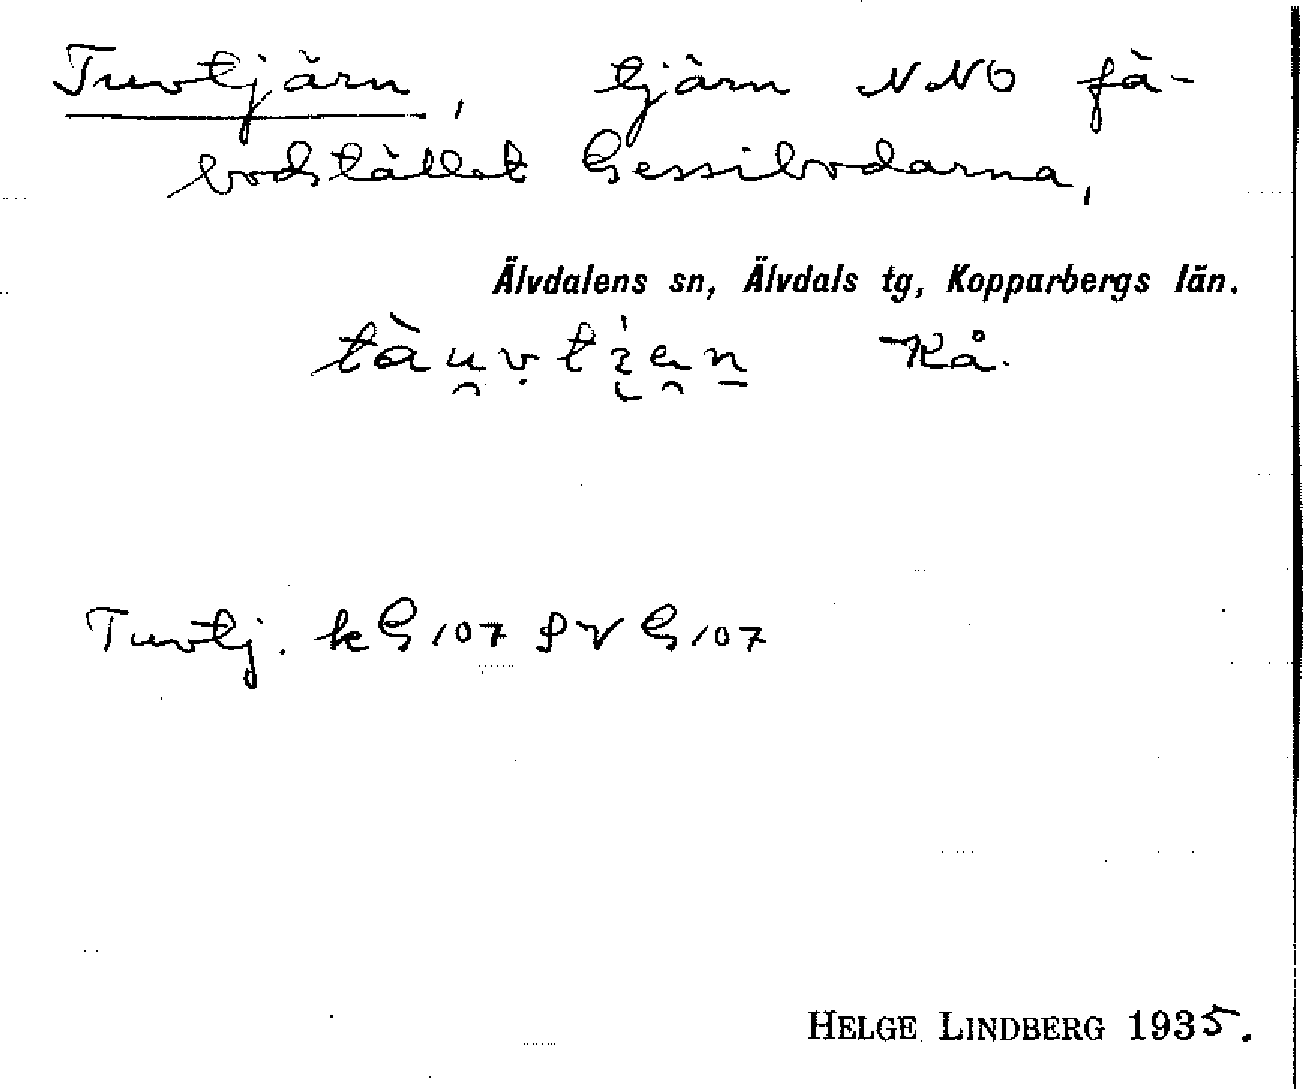 Tuvtjärn, tjärn NNO fä-
bodstället Gessibodarna,
Älvdalens sn, Älvdals tg, Kopparbergs län.
Kå.
Tuvtj. k G 107
HELGE LINDBERG 1935.